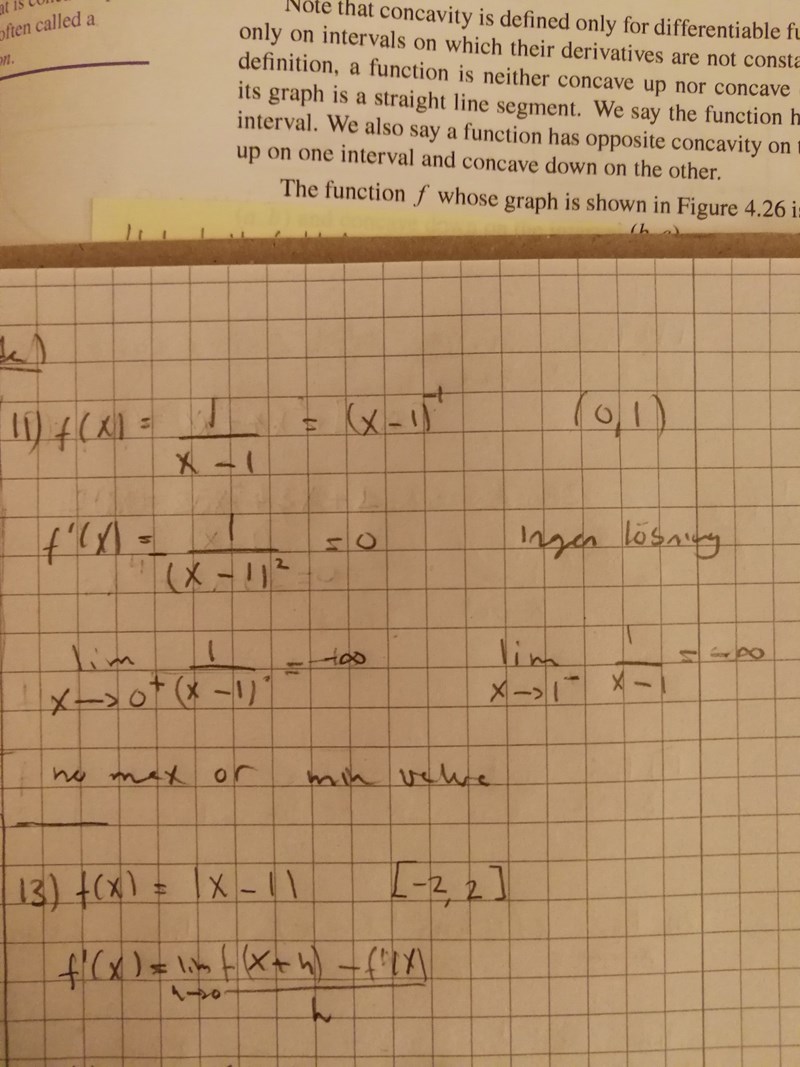 at is
often called a
on.
Note that concavity is defined only for differentiable fu
only on intervals on which their derivatives are not consta
definition, a function is neither concave up nor concave
its graph is a straight line segment. We say the function h
interval. We also say a function has opposite concavity on
up on one interval and concave down on the other.
The function f whose graph is shown in Figure 4.26 is
11) f(x) = 1/(x-1) = (x-1)^-1 (0,1)
f'(x) = - 1/(x-1)^2 = 0 Ingen lösning
lim x→0+ 1/(x-1) = -∞ lim x→1- 1/(x-1) = -∞
no max or min value
13) f(x) = |x-1| [-2, 2]
f'(x) = lim h→0 f(x+h) - f'(x) / h